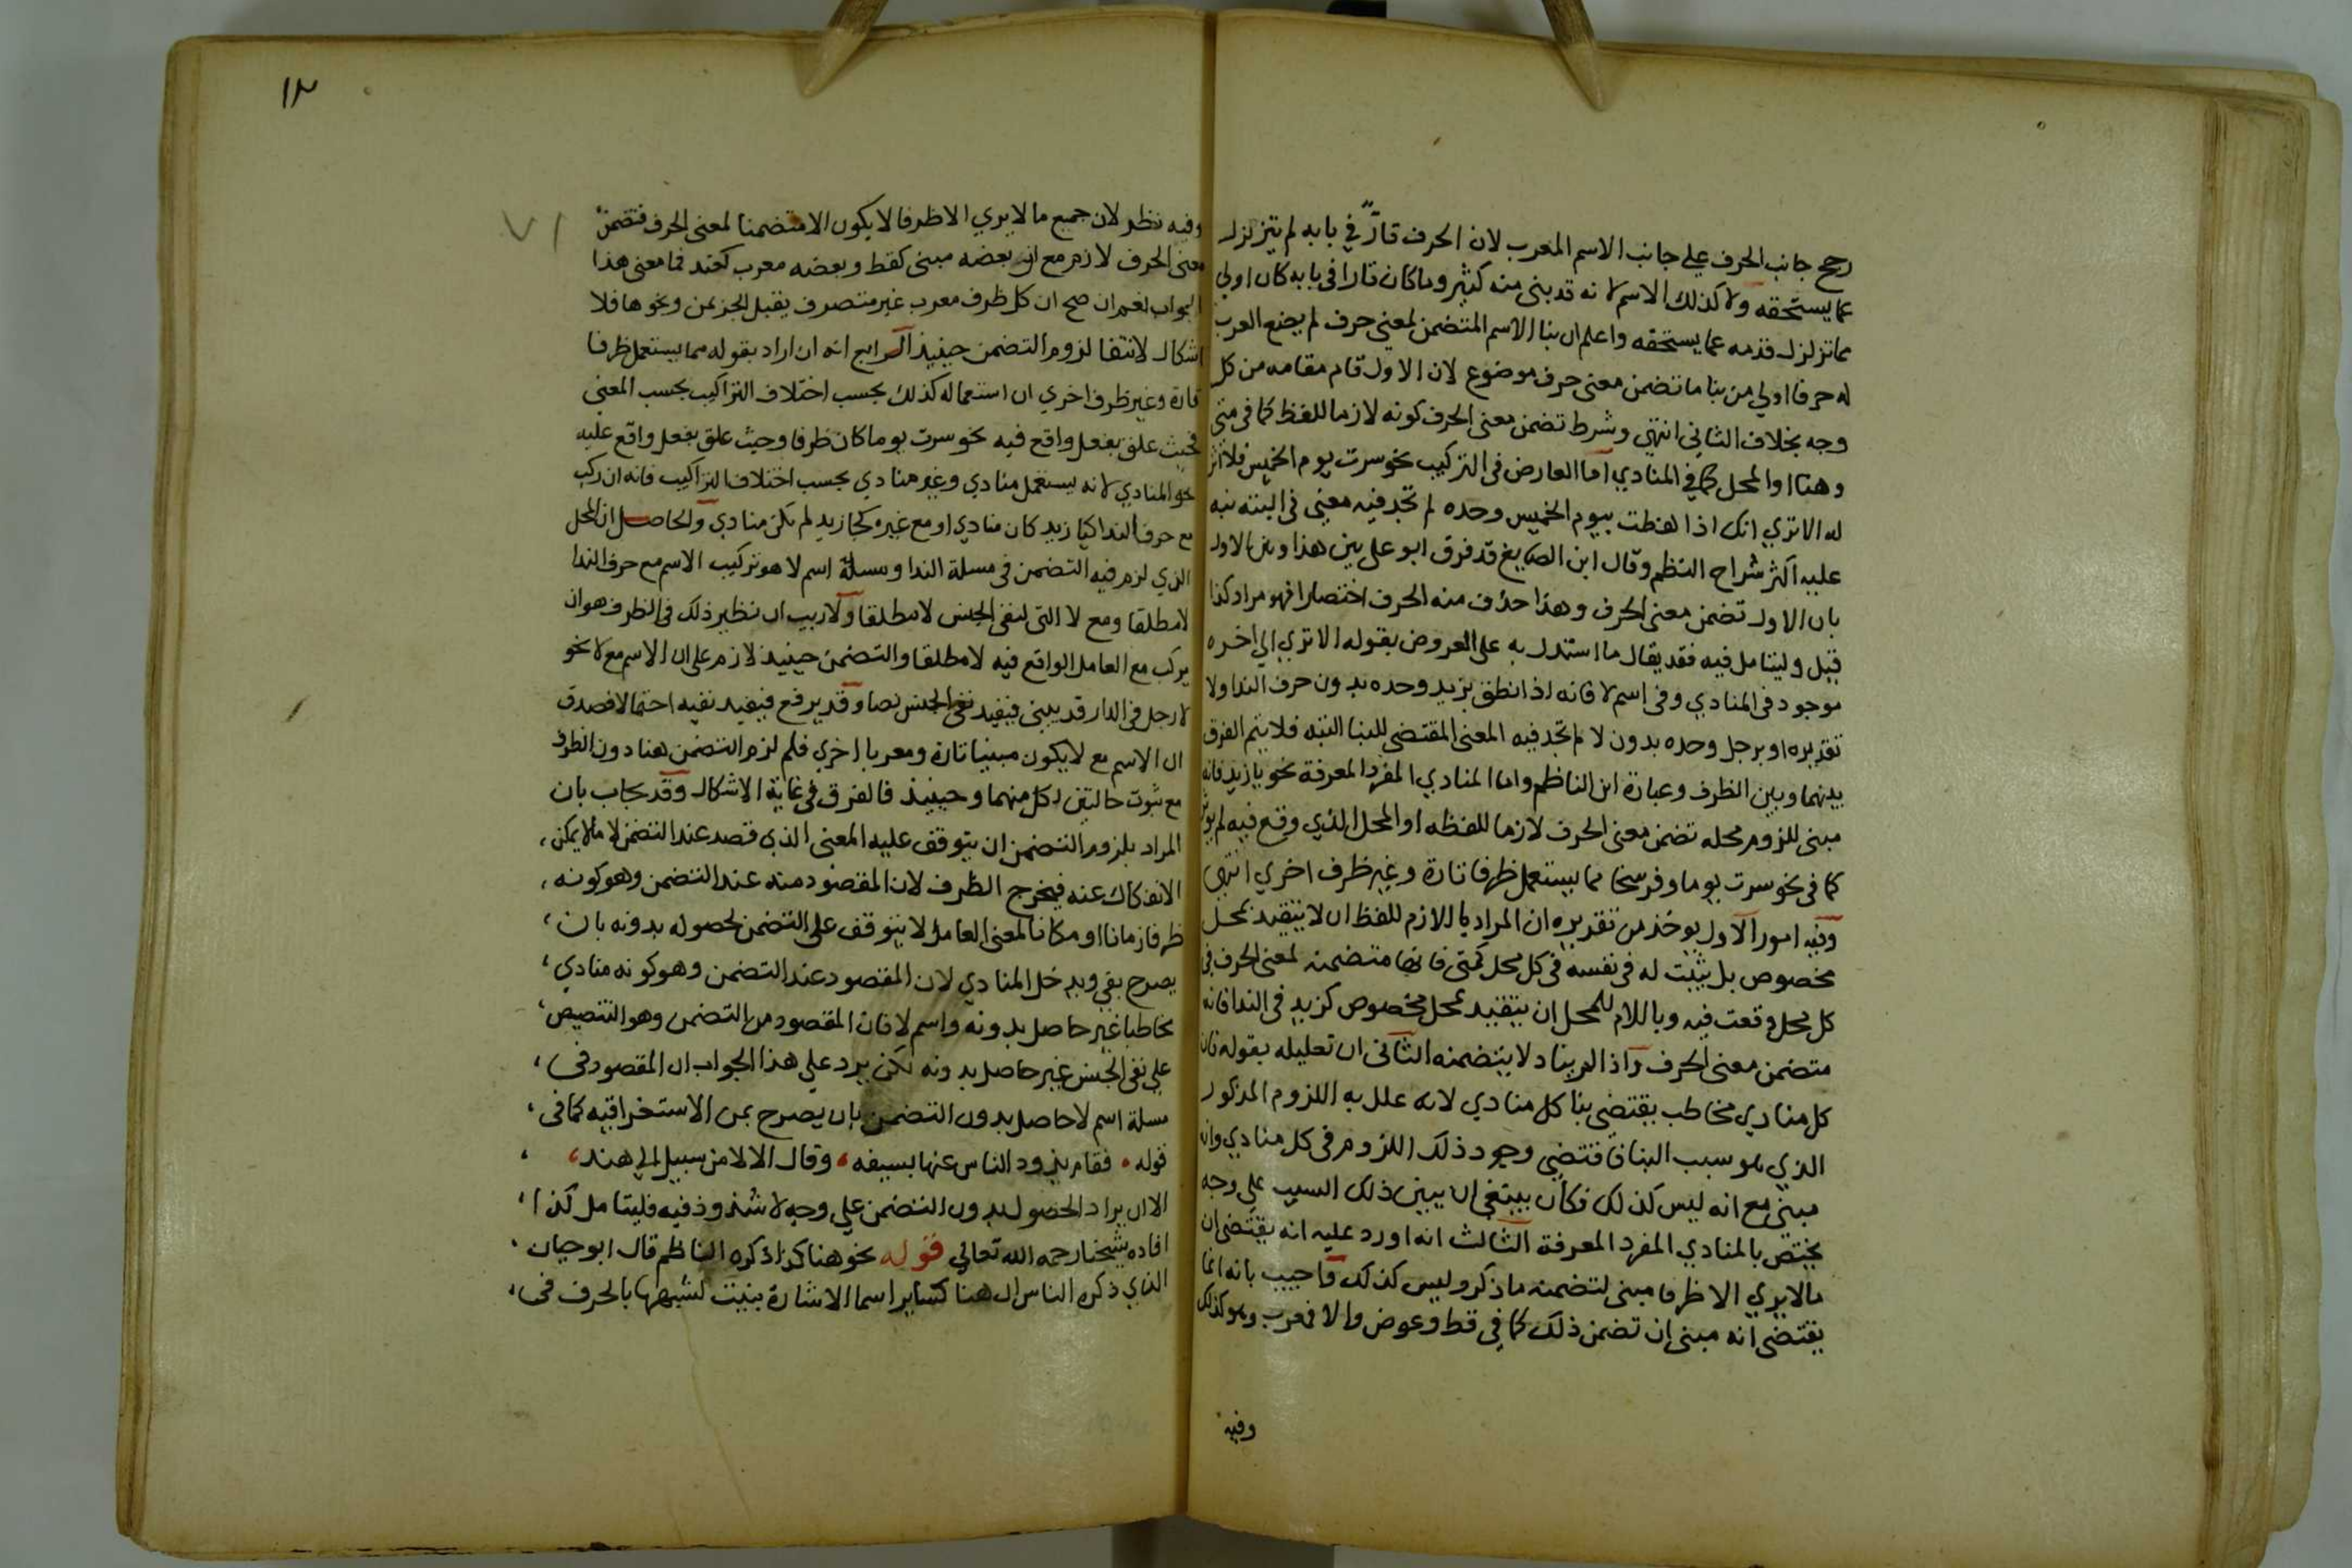 رجح جانب الحرف علي جانب الاسم المعرب لان الحرف قارّ في بابه لم يتزلزل
عما يستحقه ولا كذلك الاسم لانه قد بني منه كثير وما كان قارا في بابه كان اولي
مما تزلزل قدمه عما يستحقه واعلم ان بنا الاسم المتضمن لمعني حرف لم يضع العرب
له حرفا اولي من بنا ما تضمن معني حرف موضوع لان الاول قام مقامه من كل
وجه بخلاف الثاني انتهي وشرط تضمن معني الحرف كونه لازما للفظ كما في متي
وهنا او المحل كما في المنادي اما العارض في التركيب نحو سرت يوم الخميس فلا اثر
له الا تري انك اذا لفظت بيوم الخميس وحده لم تجد فيه معني في البتة نبه
عليه اكثر شراح النظم وقال ابن الصايغ قد فرق ابو علي بين هذا وبين الاول
بان الاول تضمن معني الحرف وهذا حذف منه الحرف اختصارا فهو مراد كذا
قيل وليتامل فيه فقد يقال ما استدل به علي العروض بقوله الا تري الي اخره
موجود في المنادي وفي اسم لا فانه اذا نطق بزيد وحده بدون حرف الندا ولا
تقديره او برجل وحده بدون لا لم تجد فيه المعني المقتضي للبنا البتة فلا يتم الفرق
بينهما وبين الظرف وعبارة ابن الناظم واما المنادي المفرد المعرفة نحو يا زيد فانه
مبني للزوم محله تضمن معني الحرف لازما للفظه او المحل الذي وقع فيه لم يوثر
كما في نحو سرت يوما وفرسخا مما يستعمل ظرفا تارة وغير ظرف اخري انتهي
وفيه امور الاول يوخذ من تقديره ان المراد باللازم للفظ ان لا يتقيد بمحل
مخصوص بل يثبت له في نفسه في كل محل كمتي فانها متضمنة لمعني الحرف في
كل محل وقعت فيه وباللام للمحل ان يتقيد بمحل مخصوص كزيد في الندا فانه
متضمن معني الحرف واذا لم يناد لا يتضمنه الثاني ان تعليله بقوله فان
كل منادي مخاطب يقتضي بنا كل منادي لانه علل به اللزوم المذكور
الذي هو سبب البنا فاقتضي وجود ذلك اللزوم في كل منادي وانه
مبني مع انه ليس كذلك فكان ينبغي ان يبين ذلك السبب علي وجه
يختص بالمنادي المفرد المعرفة الثالث انه اورد عليه انه يقتضي ان
مالا يري الا ظرفا مبني لتضمنه ما ذكر وليس كذلك واجيب بانه انما
يقتضي انه مبني ان تضمن ذلك كما في قط وعوض والا فمعرب وهو كذلك
وفيه
١٣
وفيه نظر لان جميع ما لا يري الا ظرفا لا يكون الا متضمنا لمعني الحرف فتضمن
معني الحرف لازم مع ان بعضه مبني كقط وبعضه معرب كعند فما معني هذا
الجواب نعم ان صح ان كل ظرف معرب غير متصرف يقبل الجر بمن ونحوها فلا
اشكال لانتفا لزوم التضمن حينيذ الرابع انه ان اراد بقوله مما يستعمل ظرفا
تارة وغير ظرف اخري ان استعماله كذلك بحسب اختلاف التراكيب بحسب المعني
فحيث علق بفعل واقع فيه نحو سرت يوما كان ظرفا وحيث علق بفعل واقع عليه
نحو المنادي لانه يستعمل منادي وغير منادي بحسب اختلاف التراكيب فانه ان ركب
مع حرف الندا كيا زيد كان منادي او مع غيره كجا زيد لم يكن منادي والحاصل ان المحل
الذي لزم فيه التضمن في مسلة الندا ومسلة اسم لا هو تركيب الاسم مع حرف الندا
لا مطلقا ومع لا التي لنفي الجنس لا مطلقا ولا ريب ان نظير ذلك في الظرف هو ان
يركب مع العامل الواقع فيه لا مطلقا والتضمن حينيذ لازم علي ان الاسم مع لا نحو
لا رجل في الدار قد يبني فيفيد نفي الجنس نصا وقد يرفع فيفيد نفيه احتمالا فصدق
ان الاسم مع لا يكون مبنيا تارة ومعربا اخري فلم لزم التضمن هنا دون الظرف
مع ثبوت حالتين لكل منهما وحينيذ فالفرق في غاية الاشكال وقد يجاب بان
المراد بلزوم التضمن ان يتوقف عليه المعني الذي قصد عند التضمن لا ما لا يمكن
الانفكاك عنه فيخرج الظرف لان المقصود منه عند التضمن وهو كونه
ظرفا زمانا او مكانا لمعني العامل لا يتوقف علي التضمن لحصوله بدونه بان
يصرح بفي ويدخل المنادي لان المقصود عند التضمن وهو كونه منادي
مخاطبا غير حاصل بدونه واسم لا فان المقصود من التضمن وهو التنصيص
علي نفي الجنس غير حاصل بدونه لكن يرد علي هذا الجواب ان المقصود في
مسلة اسم لا حاصل بدون التضمن بان يصرح بمن الاستغراقيه كما في
قوله . فقام يذود الناس عنها بسيفه . وقال الا لا من سبيل الي هند
الا ان يراد الحصول بدون التضمن علي وجه لا شذوذ فيه فليتامل كذا
افاده شيخنا رحمه الله تعالي قوله نحو هنا كذا ذكره الناظم قال ابو حيان
الذي ذكره الناس ان هنا كساير اسما الاشارة بنيت لشبهها بالحرف في